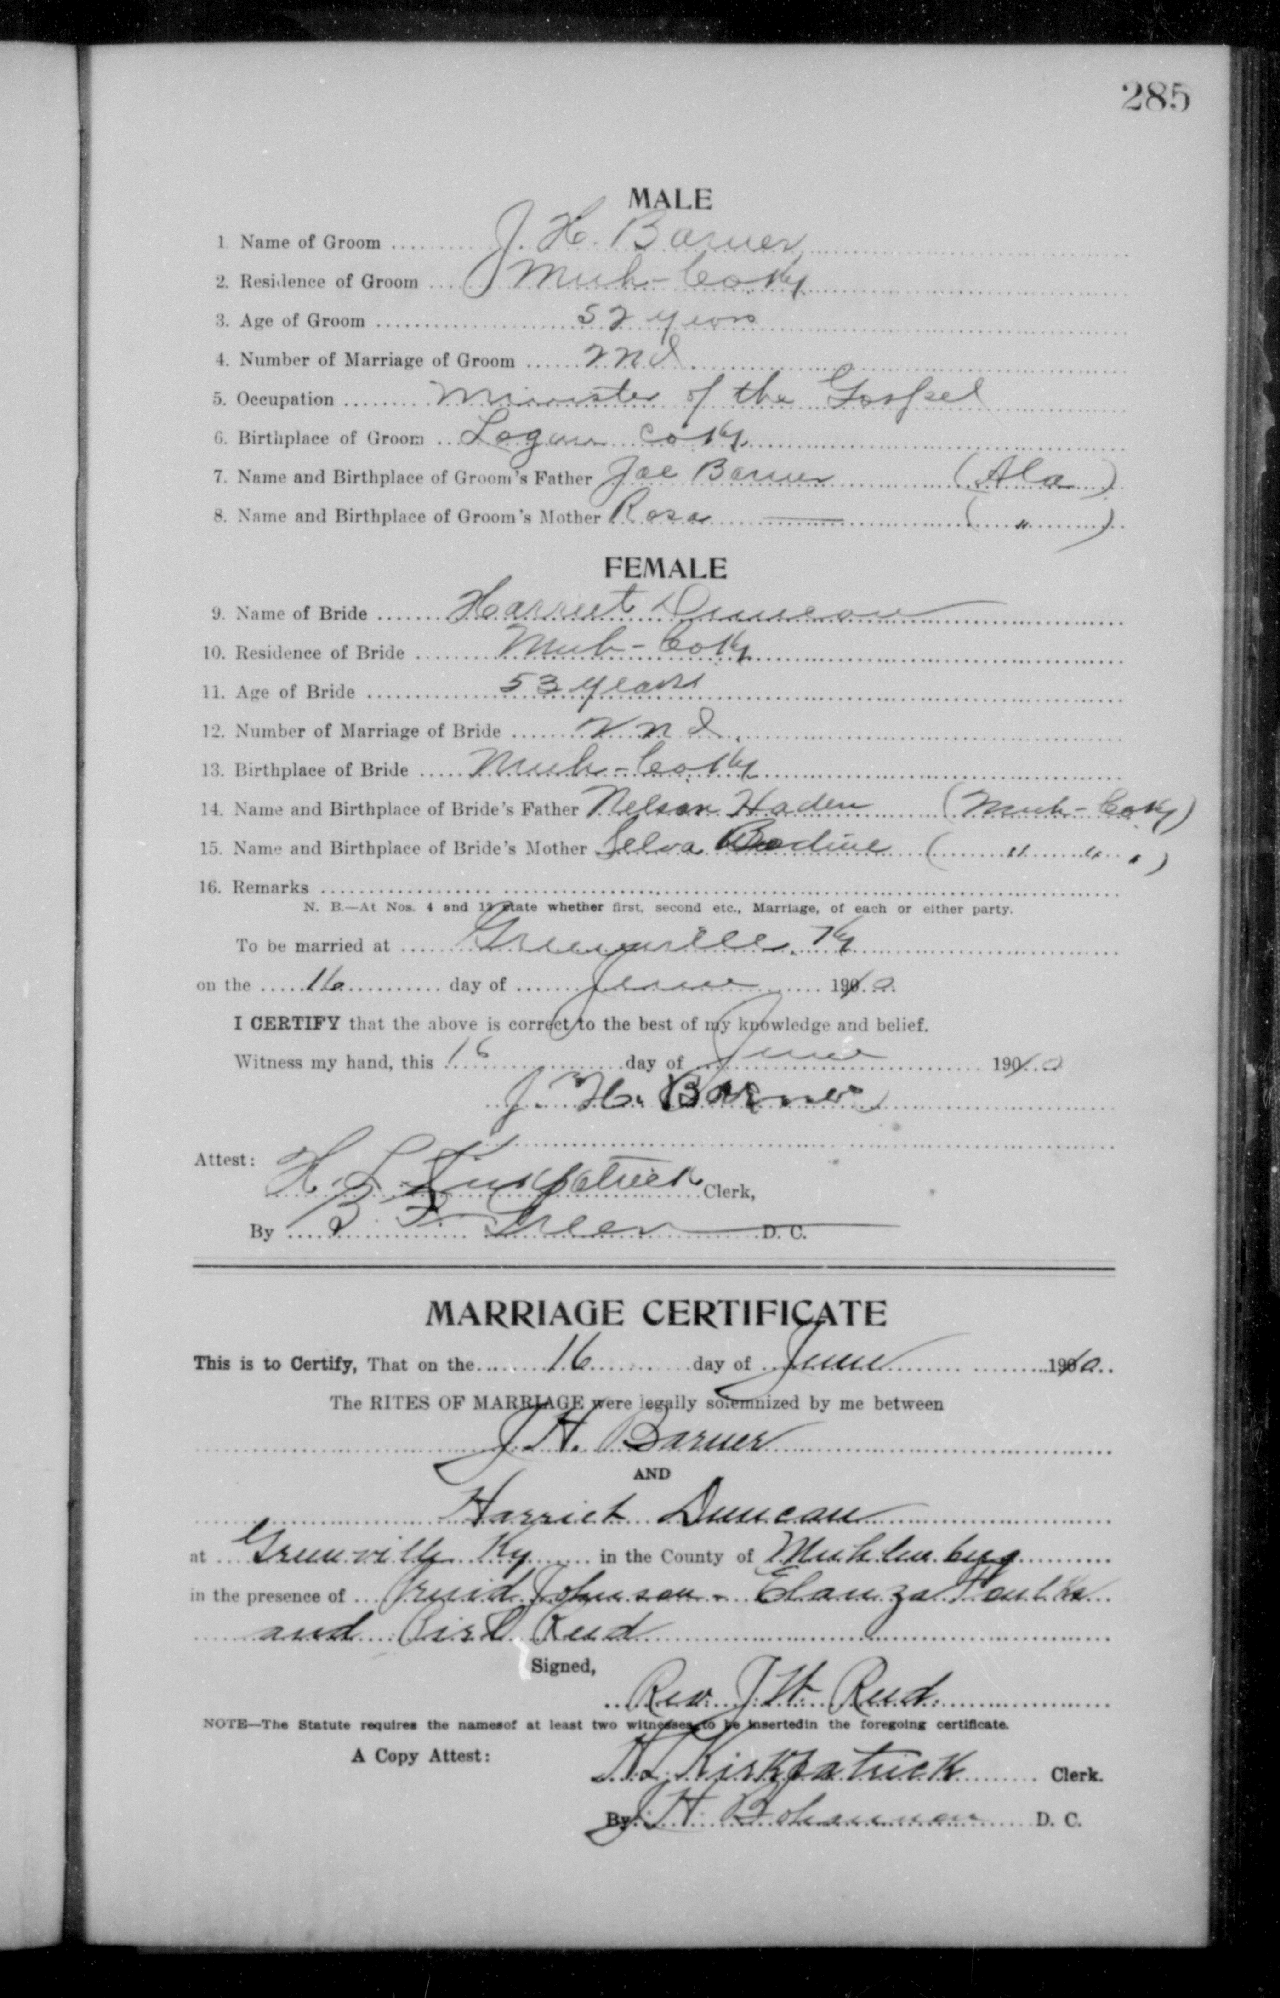 285
MALE
1 Name of Groom J. H. Barner
2. Residence of Groom Muh- Co Ky
3. Age of Groom 52 years
4. Number of Marriage of Groom 2nd
5. Occupation Minister of the Gospel
6. Birthplace of Groom Logan Co Ky
7. Name and Birthplace of Groom's Father Joe Barner (Ala)
8. Name and Birthplace of Groom's Mother Rosa — ( " )
FEMALE
9. Name of Bride Harriet Duncan
10. Residence of Bride Muh- Co Ky
11. Age of Bride 53 years
12. Number of Marriage of Bride 2nd.
13. Birthplace of Bride Muh- Co Ky
14. Name and Birthplace of Bride's Father Nelson Haden (Muh- Co Ky)
15. Name and Birthplace of Bride's Mother Selva Bodine ( " " " )
16. Remarks
N. B.—At Nos. 4 and 12 state whether first, second etc., Marriage, of each or either party.
To be married at Greenville. Ky
on the 16 day of June 1910
I CERTIFY that the above is correct to the best of my knowledge and belief.
Witness my hand, this 16 day of June 1910
J. H. Barner
Attest: H. L. Kirkpatrick Clerk,
By B. F. Green D. C.
MARRIAGE CERTIFICATE
This is to Certify, That on the 16 day of June 1910
The RITES OF MARRIAGE were legally solemnized by me between
J. H. Barner
AND
Harriet Duncan
at Greenville Ky in the County of Muhlenberg
in the presence of Johnson - Elanza
and Bird Reid
Signed,
Rev. J. W. Reed.
NOTE—The Statute requires the namesof at least two witnesses to be insertedin the foregoing certificate.
A Copy Attest: H L Kirkpatrick Clerk.
By J H Bohannon D. C.